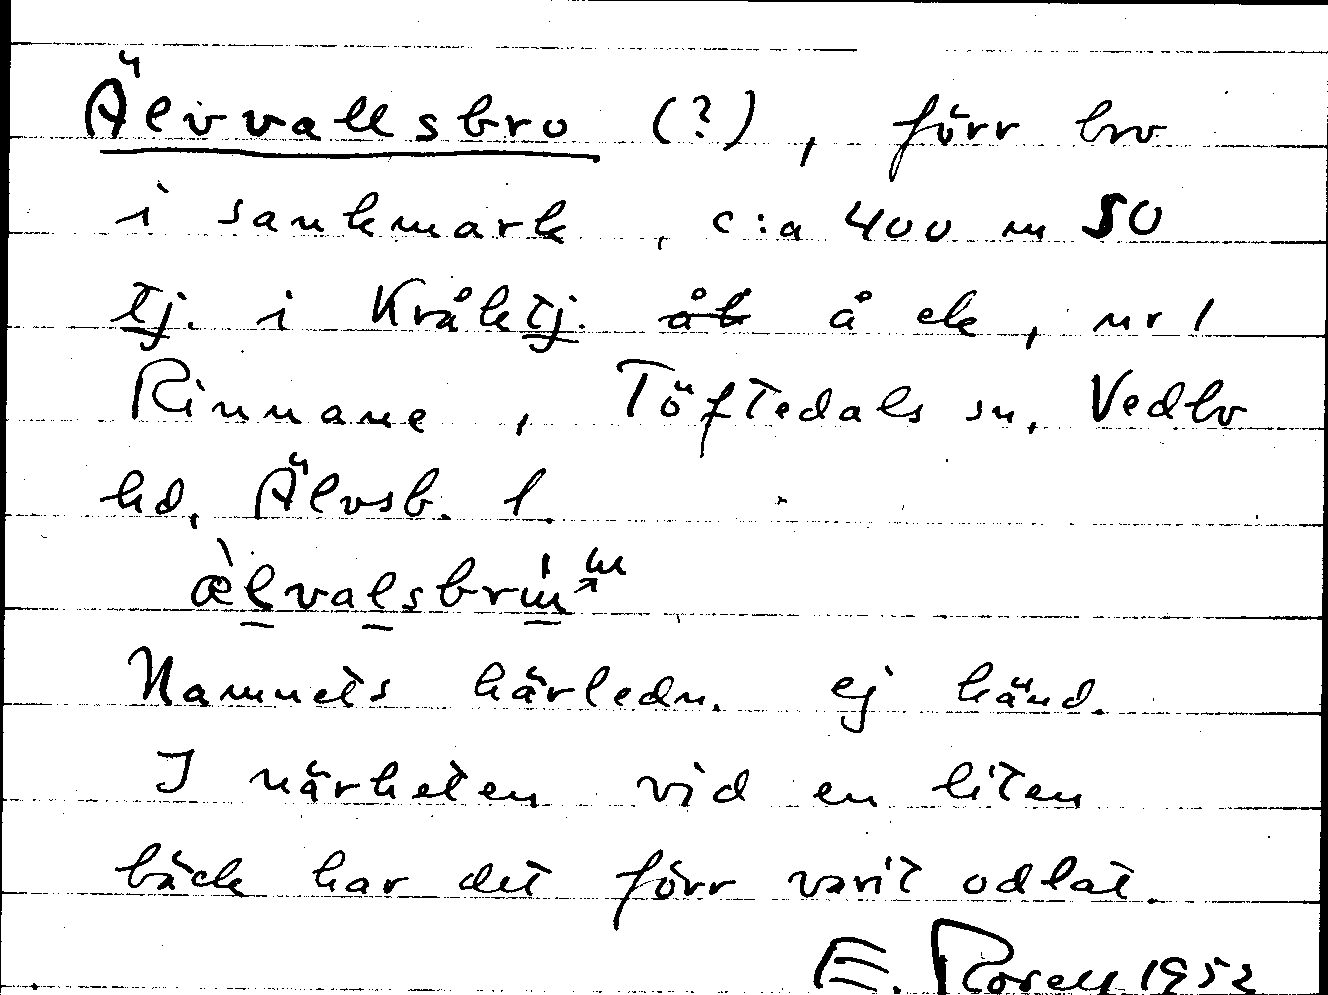 Älvvallsbro (?), förr bro
i sankmark, c:a 400 m SO
tj. i Kråktj. åk å ek, nr 1
Rinnane, Töftedals sn, Vedbo
hd, Älvsb. l.
Namnets härledn. ej känd.
I närheten vid en liten
bäck har det förr varit odlat.
E. Rosell 1952